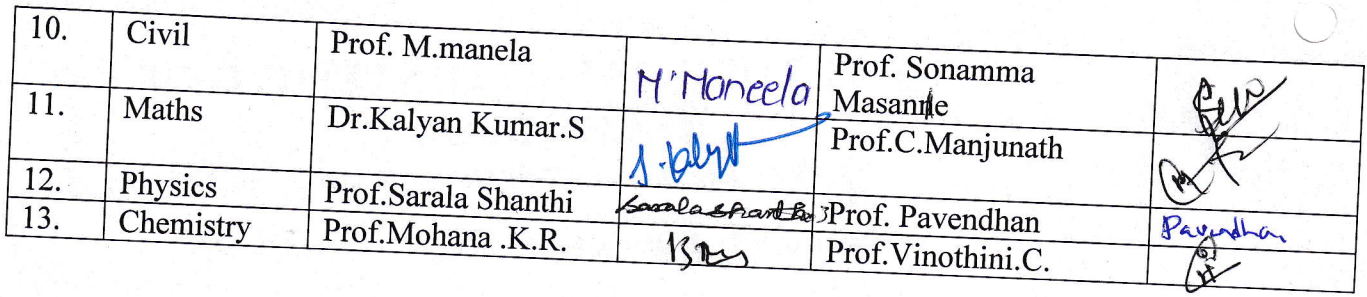 10. Civil Prof. M.manela M.Maneela Prof. Sonamma
Masanne
11. Maths Dr.Kalyan Kumar.S Prof.C.Manjunath
12. Physics Prof.Sarala Shanthi Saralashanthi Prof. Pavendhan Pavendhan
13. Chemistry Prof.Mohana .K.R. Prof.Vinothini.C.